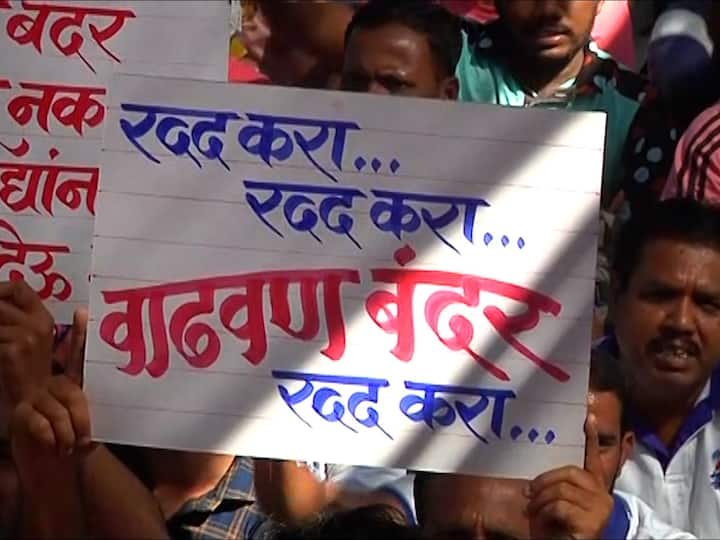 बंदर
नक
द्यांन
देऊ
रद्द करा...
रद्द करा...
वाढवण बंदर
रद्द करा...